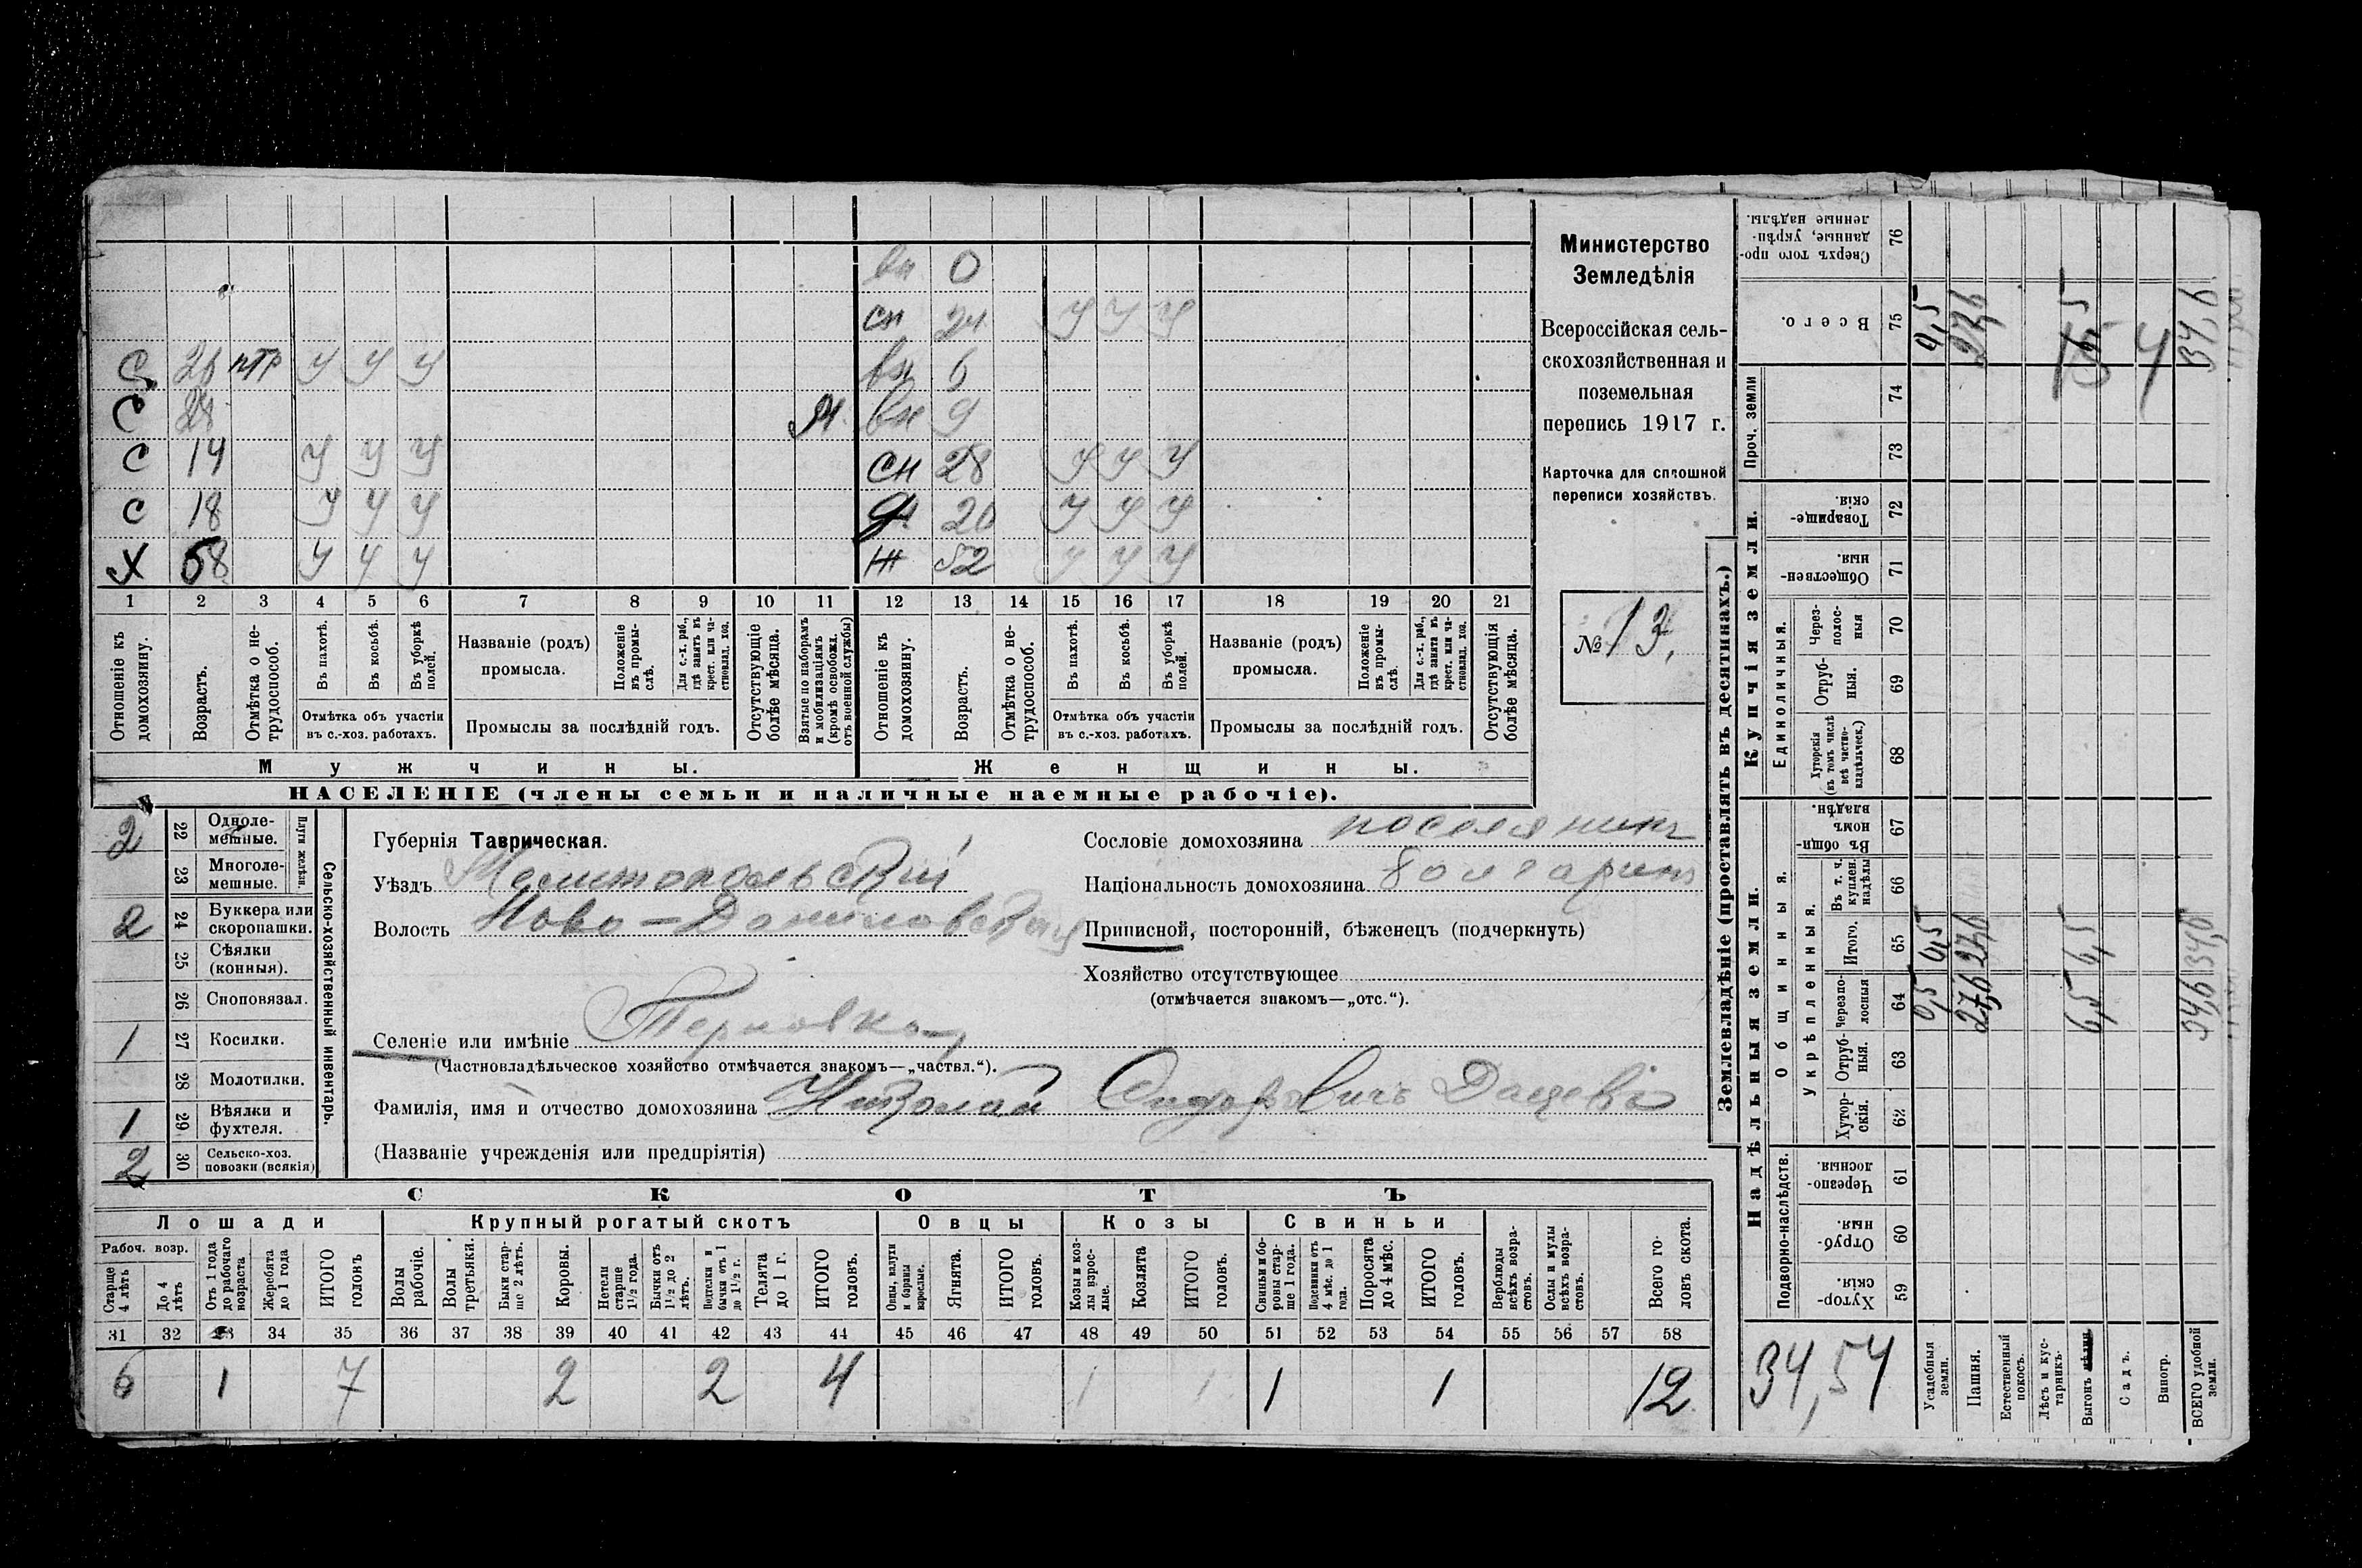 вн 0
сн 24 У У У
С 26 нтр У У У вн 6
С 28 М. вн 9
С 14 У У У сн 28 У У У
С 18 У У У д 20 У У У
Х 58 У У У ж 52 У У У
1 2 3 4 5 6 7 8 9 10 11 12 13 14 15 16 17 18 19 20 21
Отношеніе къ домохозяину.
Возрастъ.
Отмѣтка о не-трудоспособ.
Въ пахотѣ.
Въ косьбѣ.
Въ уборкѣ полей.
Отмѣтка объ участіи
въ с.-хоз. работахъ.
Названіе (родъ)
промысла.
Положеніе въ промы-слѣ.
Для с.-х. раб., гдѣ занятъ въ крест. или ча-стновлад. хоз.
Промыслы за послѣдній годъ.
Отсутствующіе болѣе мѣсяца.
Взятые по наборамъ и мобилизаціямъ (кромѣ освобожд. отъ военной службы)
Отношеніе къ домохозяину.
Возрастъ.
Отмѣтка о не-трудоспособ.
Въ пахотѣ.
Въ косьбѣ.
Въ уборкѣ полей.
Отмѣтка объ участіи
въ с.-хоз. работахъ.
Названіе (родъ)
промысла.
Положеніе въ промы-слѣ.
Для с.-х. раб., гдѣ занята въ крест. или ча-стновлад. хоз.
Промыслы за послѣдній годъ.
Отсутствующія болѣе мѣсяца.
Мужчины. Женщины.
НАСЕЛЕНІЕ (члены семьи и наличные наемные рабочіе).
Министерство
Земледѣлія
Всероссійская сель-
скохозяйственная и
поземельная
перепись 1917 г.
Карточка для сплошной
переписи хозяйствъ.
№ 13,
2 22 Одноле-мешные.
23 Многоле-мешные.
Плуги желѣзн.
2 24 Буккера или скоропашки.
25 Сѣялки (конныя).
26 Сноповязал.
1 27 Косилки.
28 Молотилки.
1 29 Вѣялки и фухтеля.
2 30 Сельско-хоз. повозки (всякія)
Сельско-хозяйственный инвентарь.
Губернія Таврическая.
Уѣздъ Мелитопольскій
Волость Ново-Даниловская
Селеніе или имѣніе Терновка
(Частновладѣльческое хозяйство отмѣчается знакомъ—„частвл.“).
Фамилія, имя и отчество домохозяина Николай Сидоровичъ Дащевъ
(Названіе учрежденія или предпріятія)
Сословіе домохозяина поселянинъ
Національность домохозяина болгаринъ
Приписной, посторонній, бѣженецъ (подчеркнуть)
Хозяйство отсутствующее
(отмѣчается знакомъ—„отс.“).
СКОТЪ
Лошади Крупный рогатый скотъ Овцы Козы Свиньи
Рабоч. возр.
Старше 4 лѣтъ
До 4 лѣтъ
Отъ 1 года до рабочаго возраста
Жеребята до 1 года
ИТОГО головъ
Волы рабочіе.
Волы третьяки.
Быки стар-ше 2 лѣтъ.
Коровы.
Нетели старше 1½ года.
Бычки отъ 1½ до 2 лѣтъ.
Подтелки и бычки отъ 1 до 1½ г.
Телята до 1 г.
ИТОГО головъ.
Овцы, валухи и бараны взрослые.
Ягнята.
ИТОГО головъ.
Козы и коз-лы взрос-лые.
Козлята
ИТОГО головъ.
Свиньи и бо-ровы стар-ше 1 года.
Подсвинки отъ 4 мѣс. до 1 года.
Поросята до 4 мѣс.
ИТОГО головъ.
Верблюды всѣхъ возра-стовъ.
Ослы и мулы всѣхъ возра-стовъ.
Всего го-ловъ скота.
31 32 33 34 35 36 37 38 39 40 41 42 43 44 45 46 47 48 49 50 51 52 53 54 55 56 57 58
6 1 7 2 2 4 1 1 1 1 12
Землевладѣніе (проставлять въ десятинахъ.)
Надѣльныя земли. Купчія земли. Проч. земли
Подворно-наслѣдств.
Общинныя.
Укрѣпленныя.
Единоличныя.
Хутор-скія. 59
Отруб-ныя. 60
Черезпо-лосныя. 61
Хутор-скія. 62
Отруб-ныя. 63
Черезпо-лосныя 64
Итого. 65
Въ т. ч. куплен. надѣлы 66
Въ общи-номъ владѣн. 67
Хуторскія (въ томъ числѣ всѣ частно-владѣльческ.) 68
Отруб-ныя. 69
Через-полос-ныя 70
Обществен-ныя. 71
Товарище-скія. 72
73
74
Всего. 75
Сверхъ того про-данные, укрѣп-ленные надѣлы. 76
34,54
Усадебныя земли. 0,5 0,5 0,5
Пашня. 27,6 27,6 27,6
Естественный покосъ.
Лѣсъ и кус-тарникъ.
Выгонъ 6,5 6,5
Садъ.
Виногр.
ВСЕГО удобной земли. 34,6 34,6